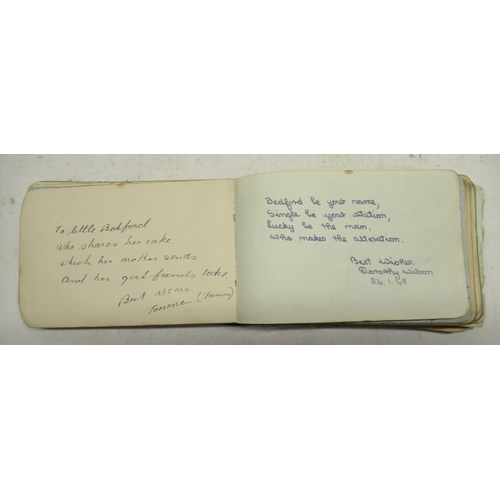 To little Bedford
who shares her cake
which her mother sends
And her girl-friends take,
Best wishes
Bedford be your name,
Single be your station,
Lucky be the man,
Who makes the alteration.
Best Wishes,
Dorothy Wilson
26.1.48